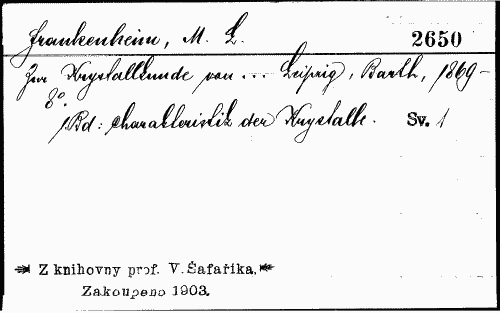 Frankenheim, M. L.
2650
Zur Krystallkunde von ... Leipzig, Barth, 1869-
8°.
1. Bd: Charakteristik der Krystalle. Sv. 1
Z knihovny prof. V. Šafaříka.
Zakoupeno 1903.